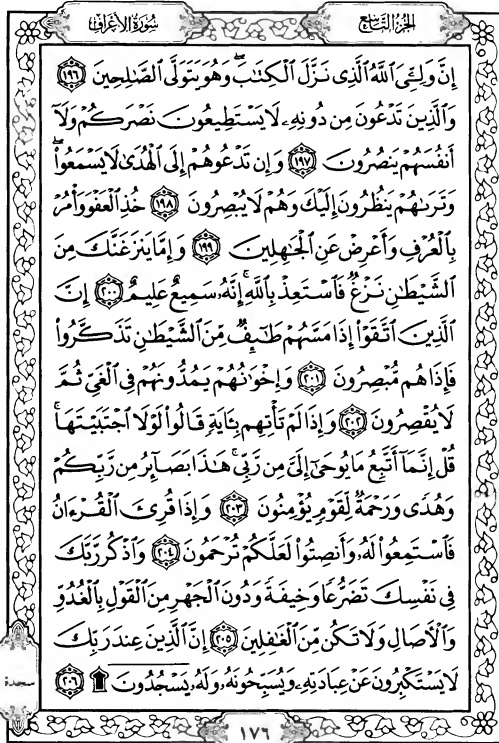 سُورَةُ الأَعْرَافِ
الجُزْءُ التَّاسِعُ
إِنَّ وَلِـِّۧيَ ٱللَّهُ ٱلَّذِي نَزَّلَ ٱلْكِتَٰبَۖ وَهُوَ يَتَوَلَّى ٱلصَّٰلِحِينَ ١٩٦
وَٱلَّذِينَ تَدْعُونَ مِن دُونِهِۦ لَا يَسْتَطِيعُونَ نَصْرَكُمْ وَلَآ
أَنفُسَهُمْ يَنصُرُونَ ١٩٧ وَإِن تَدْعُوهُمْ إِلَى ٱلْهُدَىٰ لَا يَسْمَعُوا۟ۖ
وَتَرَىٰهُمْ يَنظُرُونَ إِلَيْكَ وَهُمْ لَا يُبْصِرُونَ ١٩٨ خُذِ ٱلْعَفْوَ وَأْمُرْ
بِٱلْعُرْفِ وَأَعْرِضْ عَنِ ٱلْجَٰهِلِينَ ١٩٩ وَإِمَّا يَنزَغَنَّكَ مِنَ
ٱلشَّيْطَٰنِ نَزْغٌ فَٱسْتَعِذْ بِٱللَّهِۚ إِنَّهُۥ سَمِيعٌ عَلِيمٌ ٢٠٠ إِنَّ
ٱلَّذِينَ ٱتَّقَوْا۟ إِذَا مَسَّهُمْ طَٰٓئِفٌ مِّنَ ٱلشَّيْطَٰنِ تَذَكَّرُوا۟
فَإِذَا هُم مُّبْصِرُونَ ٢٠١ وَإِخْوَٰنُهُمْ يَمُدُّونَهُمْ فِي ٱلْغَيِّ ثُمَّ
لَا يُقْصِرُونَ ٢٠٢ وَإِذَا لَمْ تَأْتِهِم بِـَٔايَةٍ قَالُوا۟ لَوْلَا ٱجْتَبَيْتَهَاۚ
قُلْ إِنَّمَآ أَتَّبِعُ مَا يُوحَىٰٓ إِلَىَّ مِن رَّبِّيۚ هَٰذَا بَصَآئِرُ مِن رَّبِّكُمْ
وَهُدًى وَرَحْمَةٌ لِّقَوْمٍ يُؤْمِنُونَ ٢٠٣ وَإِذَا قُرِئَ ٱلْقُرْءَانُ
فَٱسْتَمِعُوا۟ لَهُۥ وَأَنصِتُوا۟ لَعَلَّكُمْ تُرْحَمُونَ ٢٠٤ وَٱذْكُر رَّبَّكَ
فِي نَفْسِكَ تَضَرُّعًا وَخِيفَةً وَدُونَ ٱلْجَهْرِ مِنَ ٱلْقَوْلِ بِٱلْغُدُوِّ
وَٱلْءَاصَالِ وَلَا تَكُن مِّنَ ٱلْغَٰفِلِينَ ٢٠٥ إِنَّ ٱلَّذِينَ عِندَ رَبِّكَ
لَا يَسْتَكْبِرُونَ عَنْ عِبَادَتِهِۦ وَيُسَبِّحُونَهُۥ وَلَهُۥ يَسْجُدُونَ ۩ ٢٠٦
سجدة
١٧٦